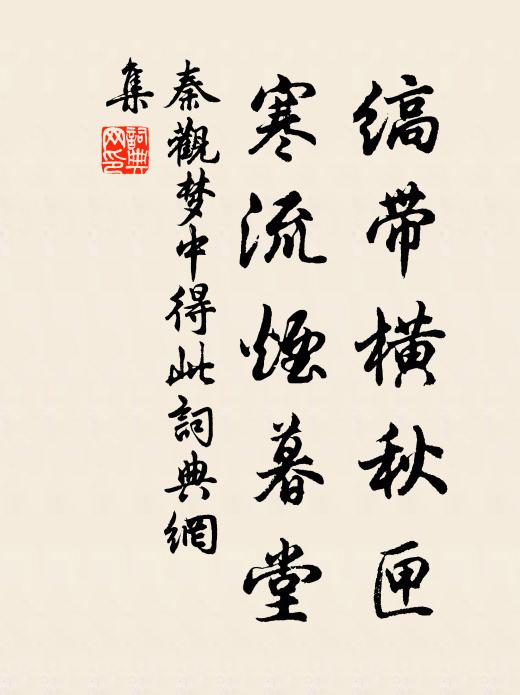 縞帶橫秋匣
寒流煙暮堂
秦觀梦中得此詞典網
集
詞典
网印